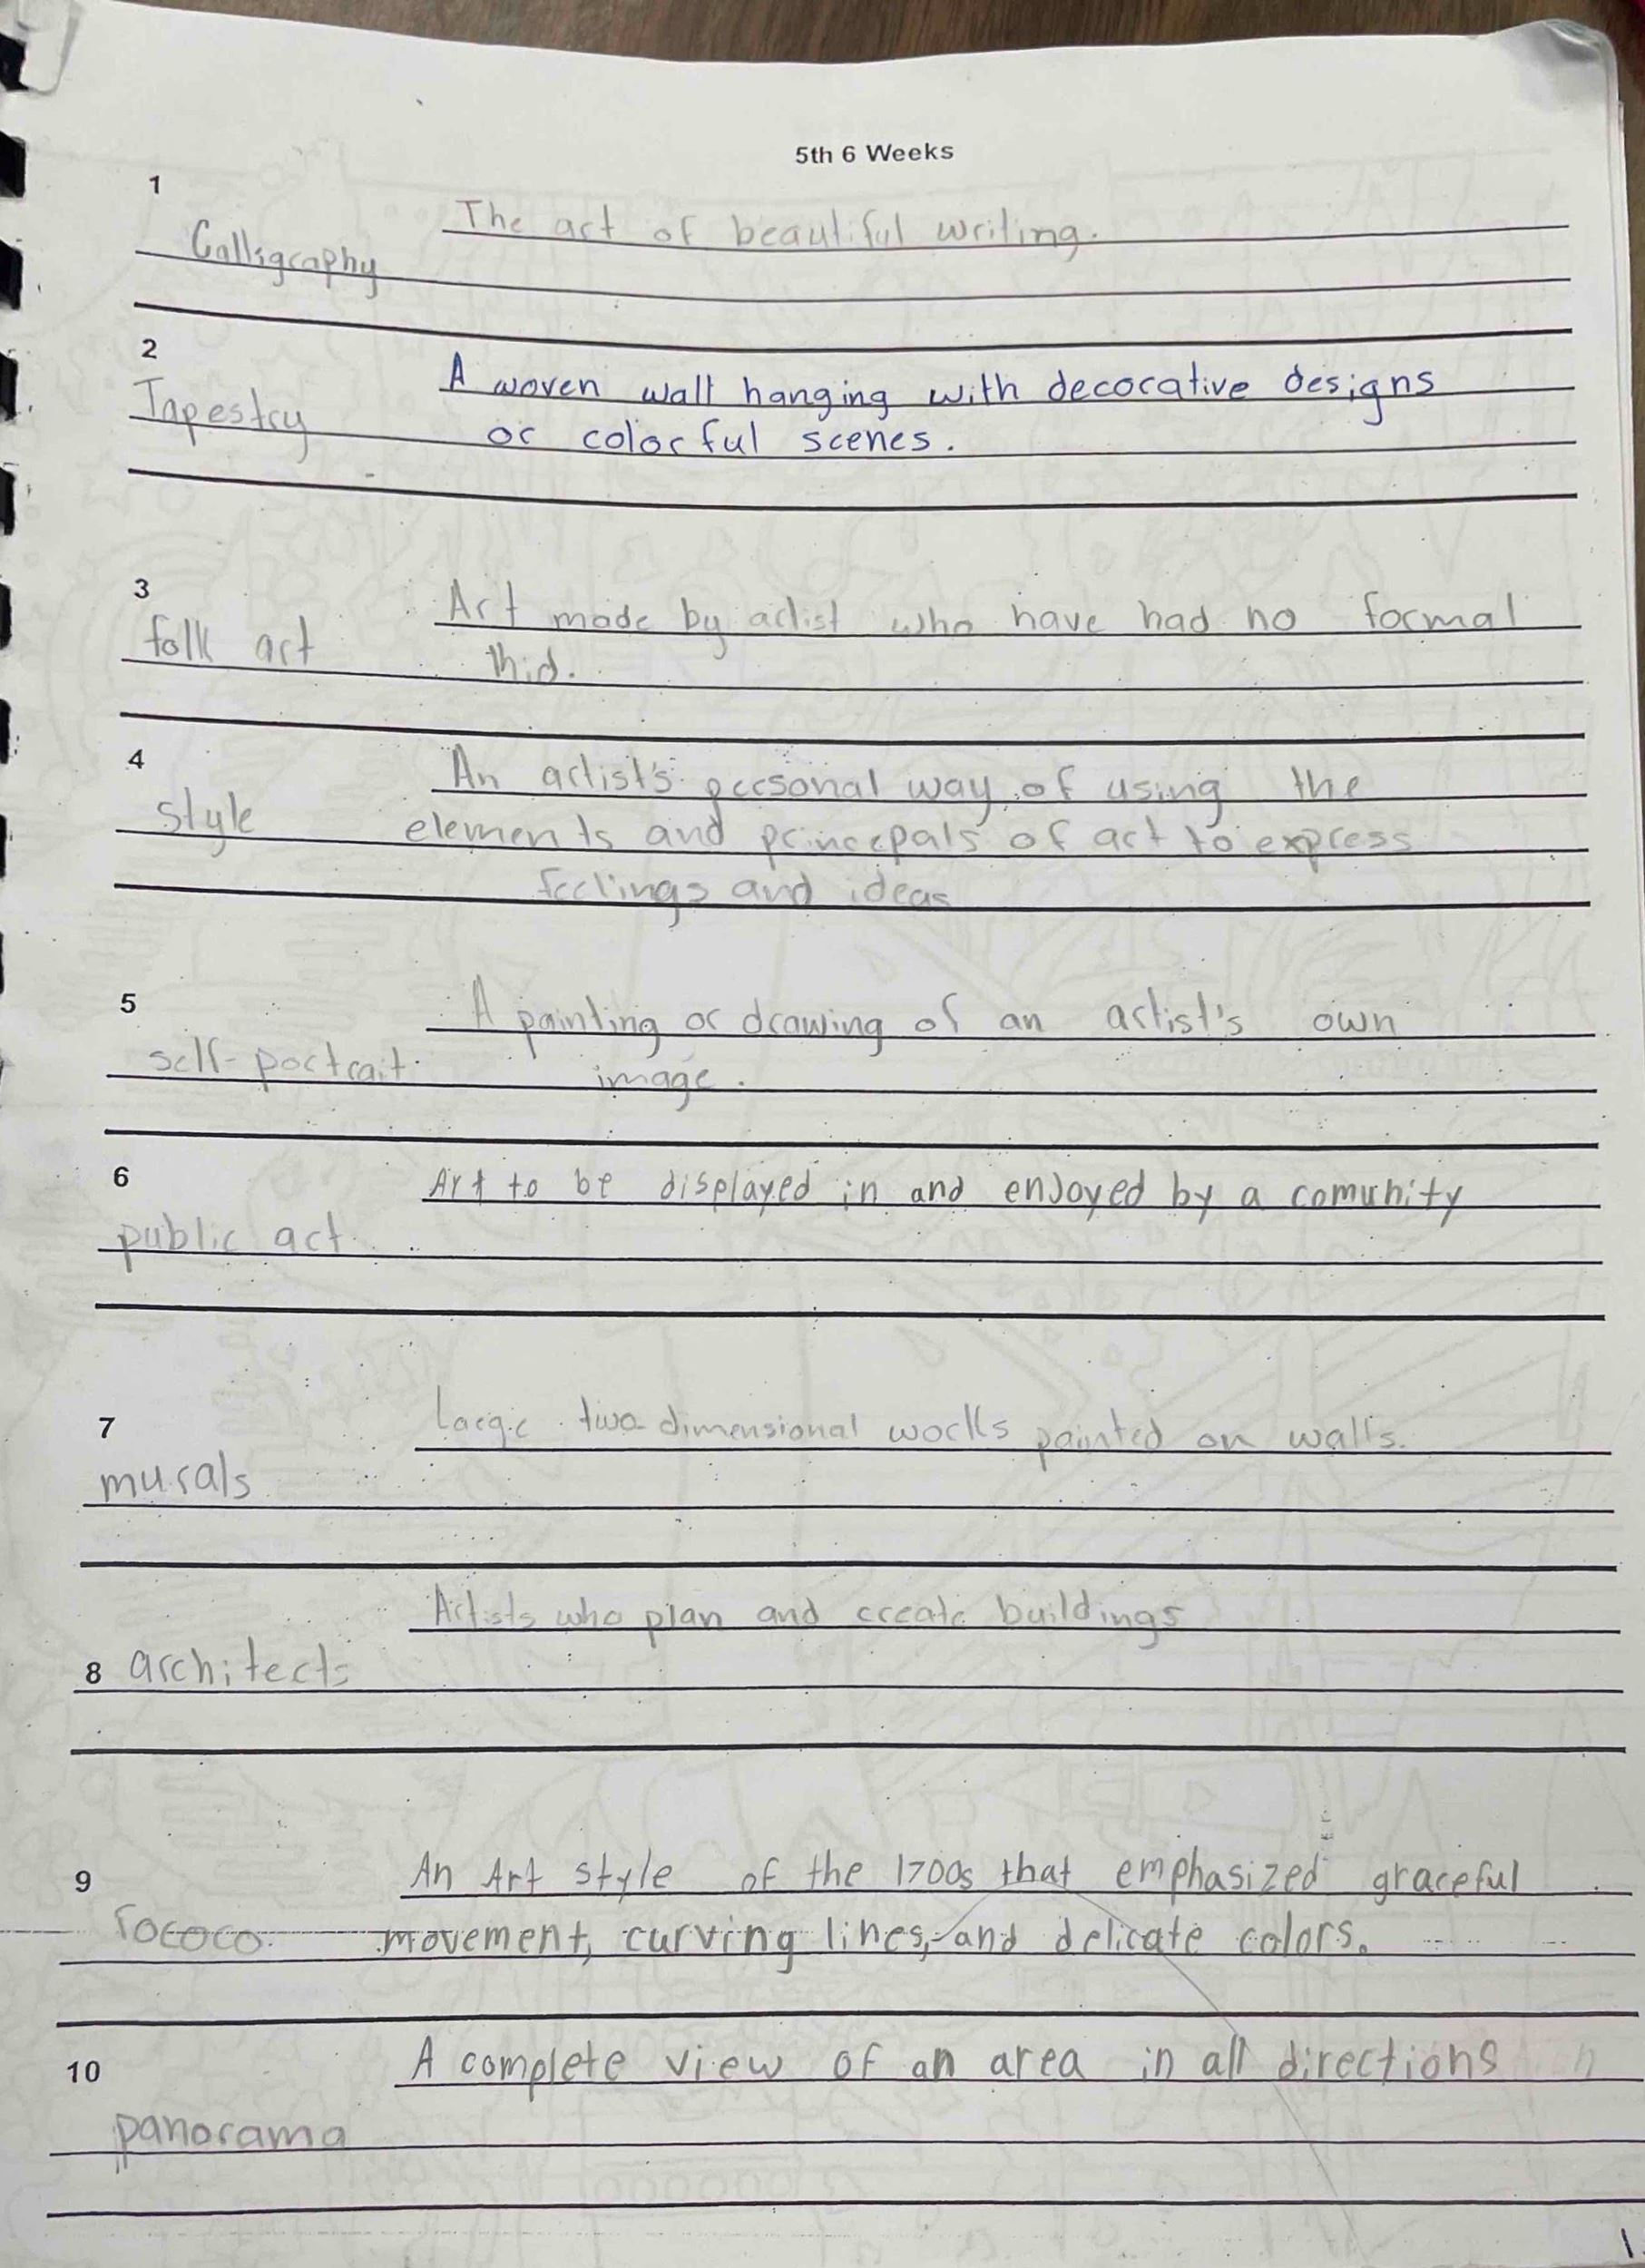 5th 6 Weeks
1
The art of beautiful writing.
Calligraphy
2
A woven wall hanging with decorative designs
Tapestry
or colorful scenes.
3
Art made by artist who have had no formal
folk art
4
An artist's personal way of using the
style
elements and princepals of art to express
feelings and ideas
5
A painting or drawing of an artist's own
self-portrait.
image.
6
Art to be displayed in and enjoyed by a comunity
public art
7
Large two-dimensional works painted on walls.
murals
Artists who plan and create buildings
8 architects
9
An Art style of the 1700s that emphasized graceful
rococo
movement, curving lines, and delicate colors.
10
A complete view of an area in all directions
panorama
1